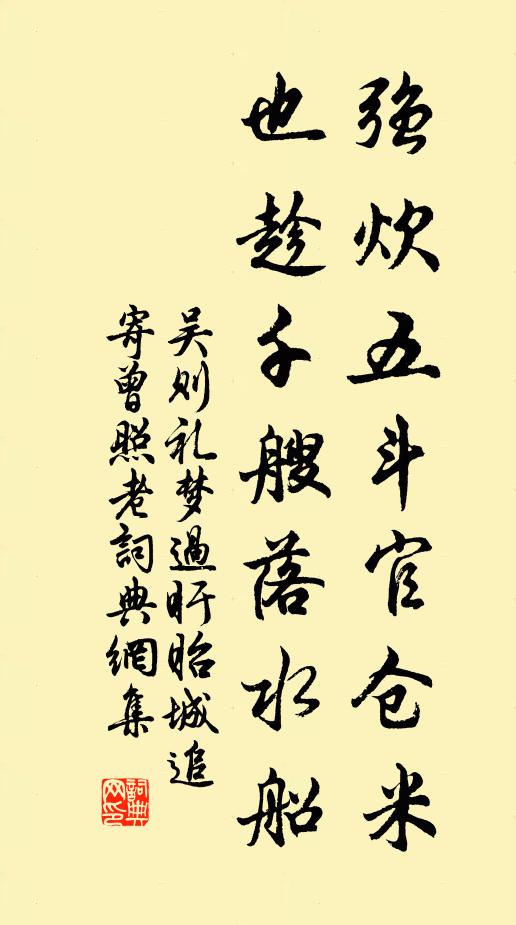 强炊五斗官仓米
也趁千艘落水船
吴则礼梦過盱眙城追
寄曾照老詞典網集
詞典网印